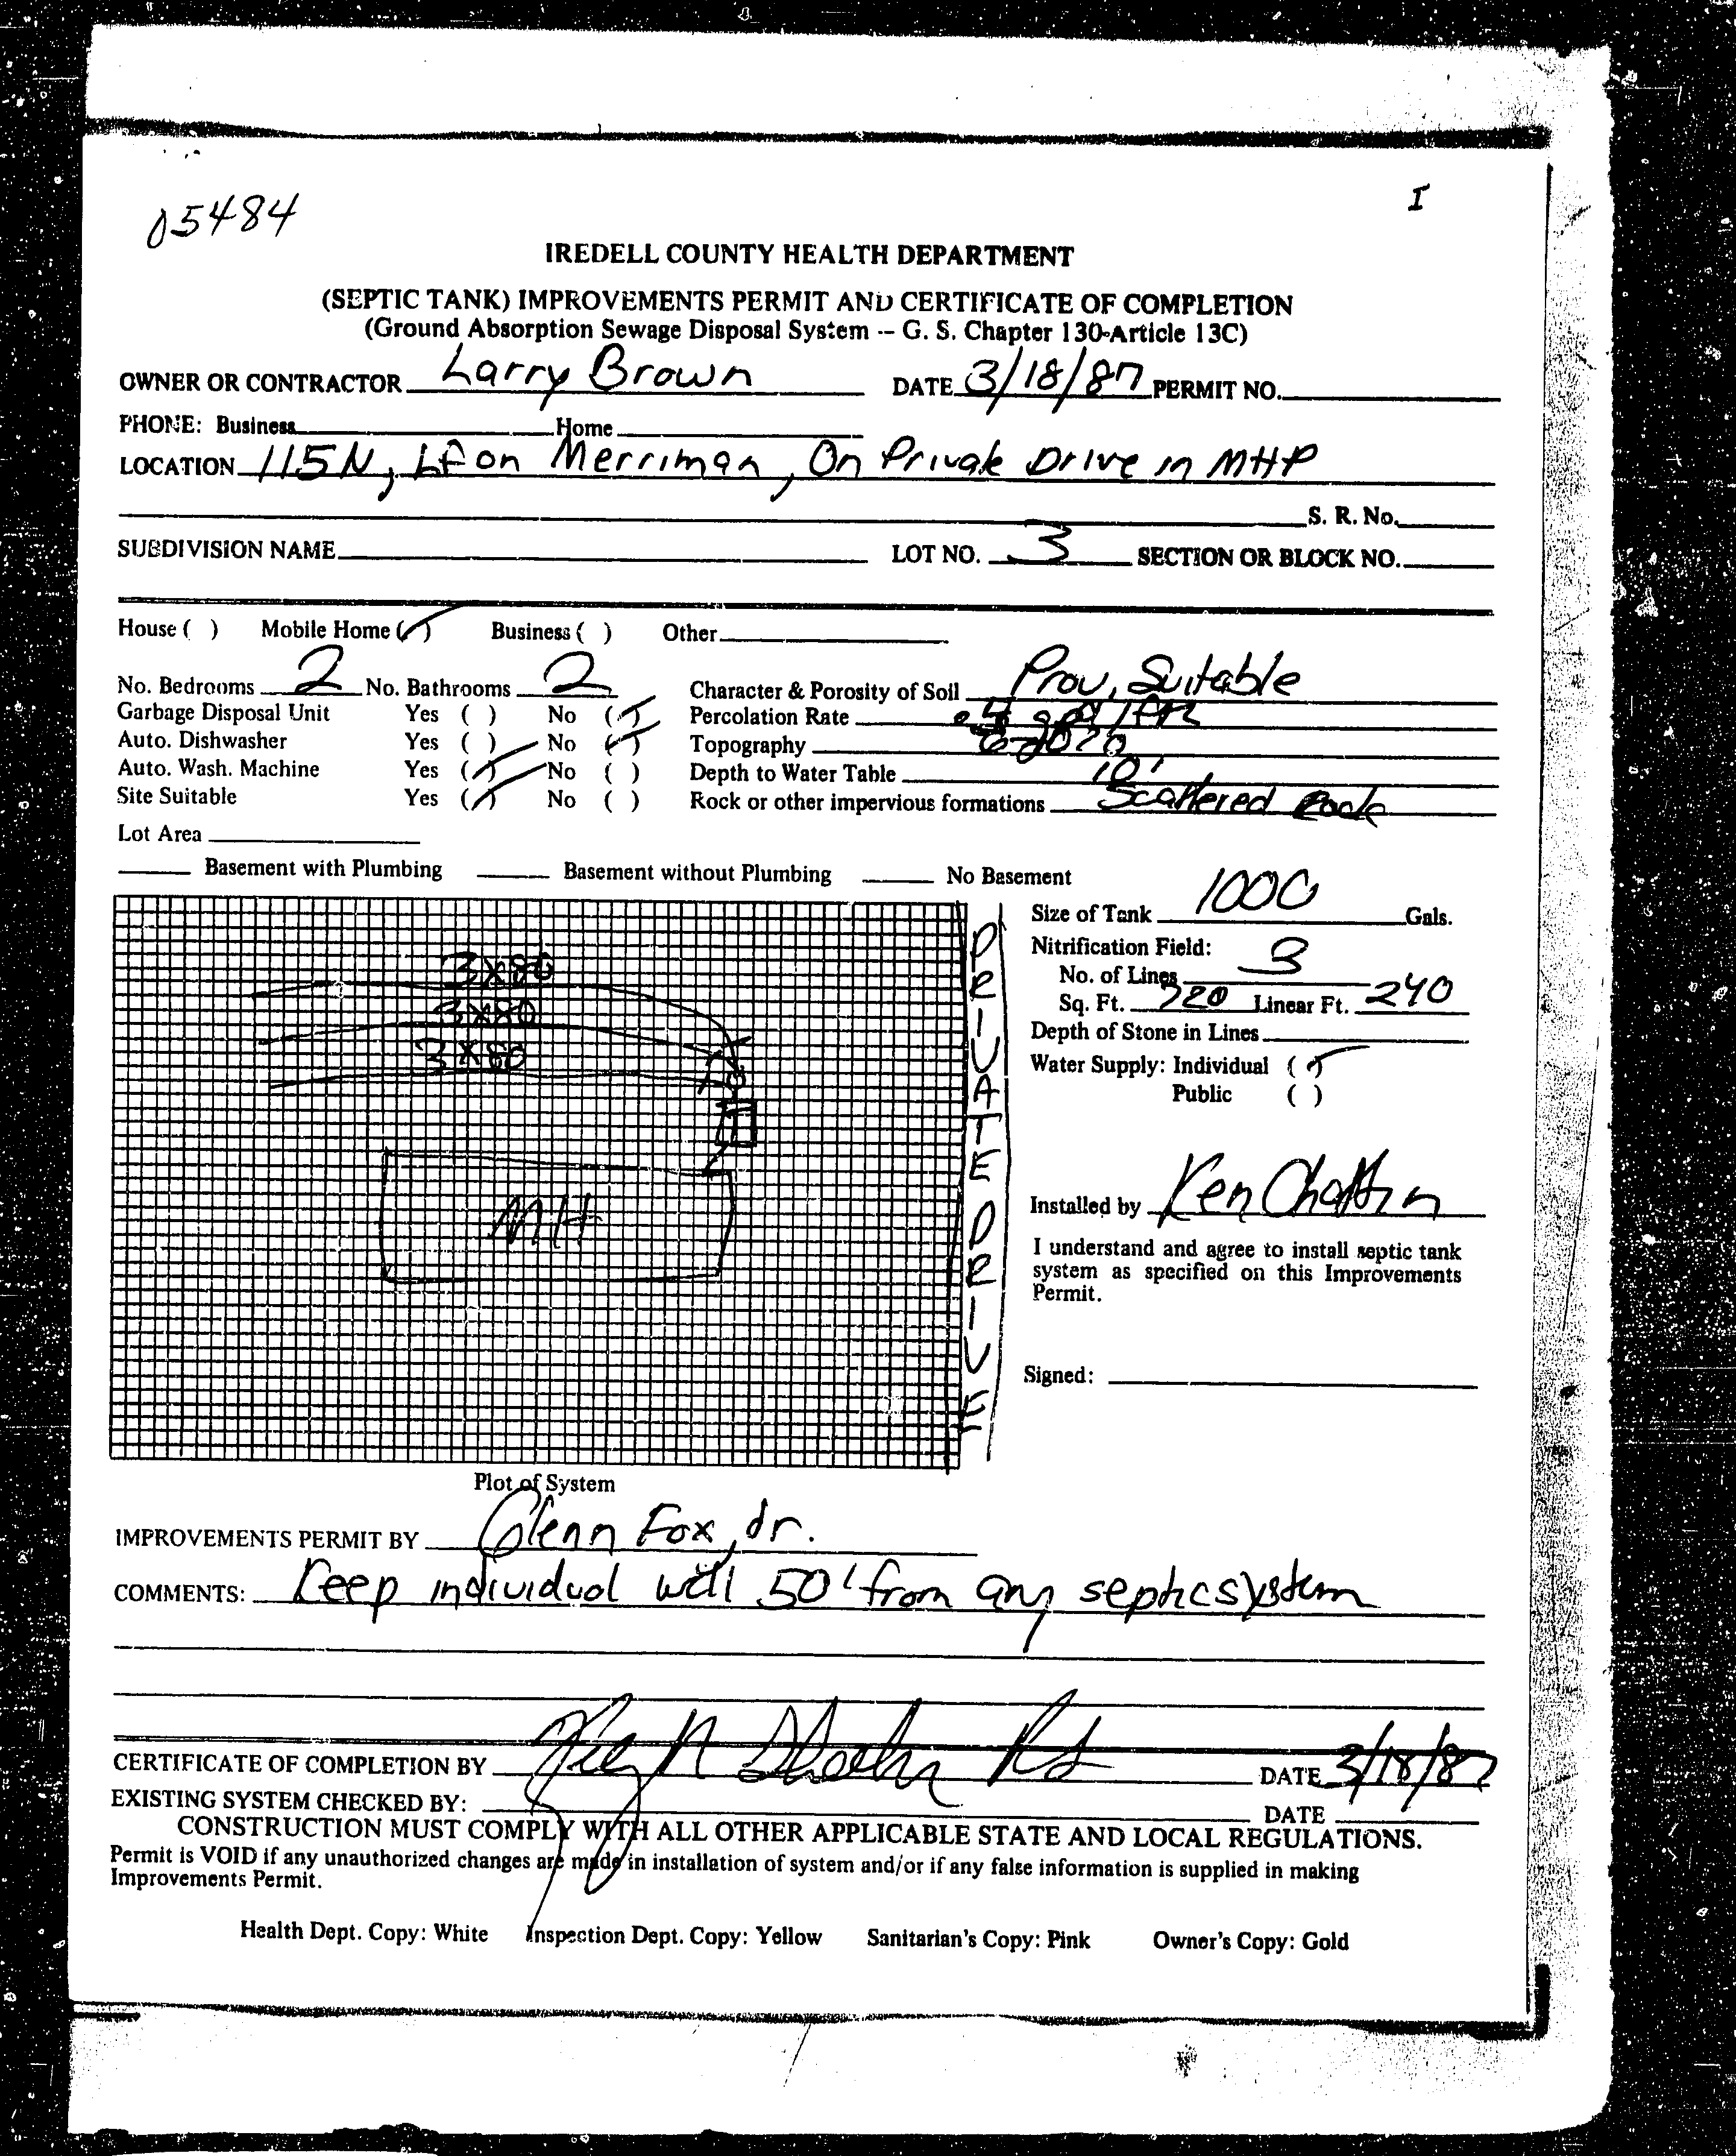 05484
I
IREDELL COUNTY HEALTH DEPARTMENT
(SEPTIC TANK) IMPROVEMENTS PERMIT AND CERTIFICATE OF COMPLETION
(Ground Absorption Sewage Disposal System -- G. S. Chapter 130-Article 13C)
OWNER OR CONTRACTOR Larry Brown DATE 3/18/87 PERMIT NO.
PHONE: Business Home
LOCATION 115N, Lf on Merriman, On Private Drive in MHP
S. R. No.
SUBDIVISION NAME LOT NO. 3 SECTION OR BLOCK NO.
House ( ) Mobile Home (✓) Business ( ) Other
No. Bedrooms 2 No. Bathrooms 2 Character & Porosity of Soil Prov. Suitable
Garbage Disposal Unit Yes ( ) No (✓) Percolation Rate
Auto. Dishwasher Yes ( ) No (✓) Topography
Auto. Wash. Machine Yes (✓) No ( ) Depth to Water Table 10'
Site Suitable Yes (✓) No ( ) Rock or other impervious formations Scattered Rock
Lot Area
Basement with Plumbing Basement without Plumbing No Basement
3x80
3x80
3x80
MH
PRIVATE DRIVE
Size of Tank 1000 Gals.
Nitrification Field:
No. of Lines 3
Sq. Ft. 720 Linear Ft. 240
Depth of Stone in Lines
Water Supply: Individual (✓)
Public ( )
Installed by Ken
I understand and agree to install septic tank
system as specified on this Improvements
Permit.
Signed:
Plot of System
IMPROVEMENTS PERMIT BY Glenn Fox, Jr.
COMMENTS: Keep individual well 50' from any septic system
CERTIFICATE OF COMPLETION BY RS DATE 3/18/87
EXISTING SYSTEM CHECKED BY: DATE
CONSTRUCTION MUST COMPLY WITH ALL OTHER APPLICABLE STATE AND LOCAL REGULATIONS.
Permit is VOID if any unauthorized changes are made in installation of system and/or if any false information is supplied in making
Improvements Permit.
Health Dept. Copy: White Inspection Dept. Copy: Yellow Sanitarian's Copy: Pink Owner's Copy: Gold